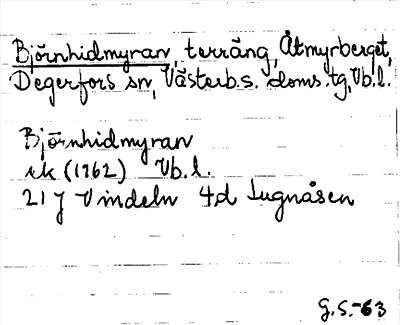 Björnhidmyran, terräng, Åtmyrberget,
Degerfors sn, Västerb.s. doms.tg, Vb.l.
Björnhidmyran
ek (1962) Vb.l.
21 J Vindeln 4d Lugnåsen
G.S.-63